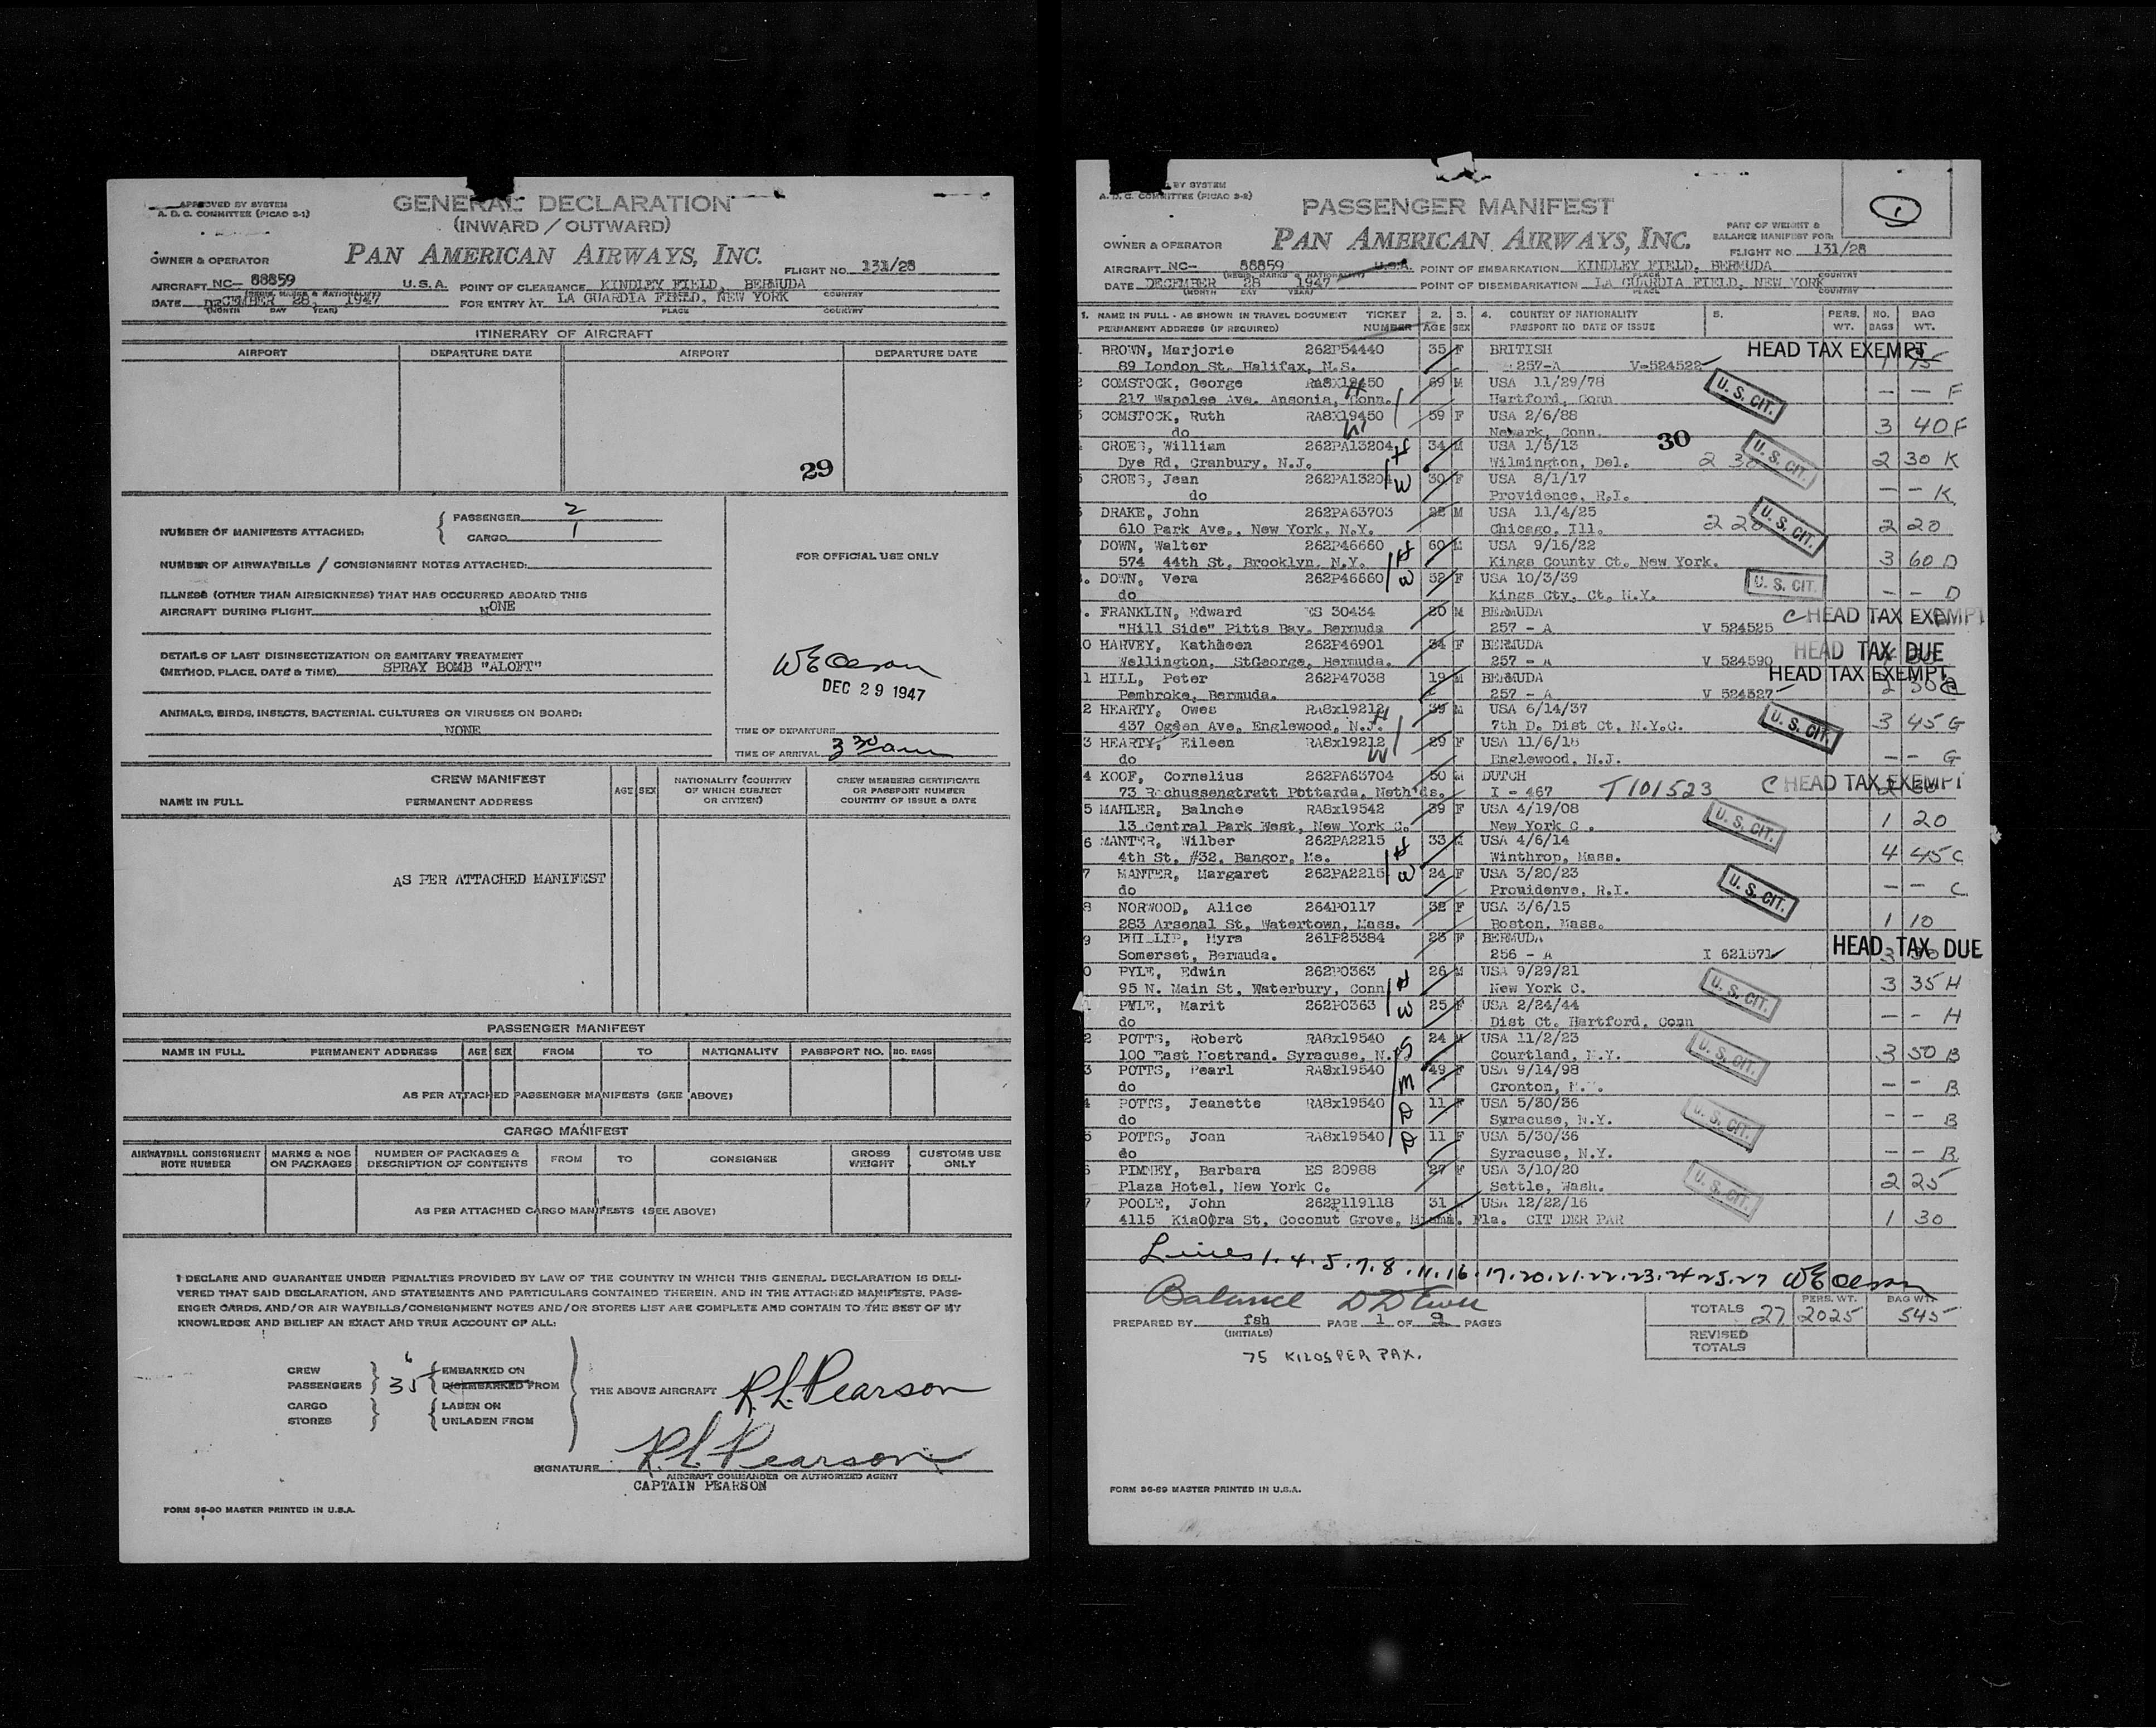 APPROVED BY SYSTEM
A. D. C. COMMITTEE (PICAO 3-1)
GENERAL DECLARATION
(INWARD / OUTWARD)
PAN AMERICAN AIRWAYS, INC.
OWNER & OPERATOR
FLIGHT NO. 131/28
AIRCRAFT NC- 88859 U.S.A. POINT OF CLEARANCE KINDLEY FIELD, BERMUDA
(REGIS. MARKS & NATIONALITY) COUNTRY
DATE DECEMBER 28, 1947 FOR ENTRY AT LA GUARDIA FIELD, NEW YORK
(MONTH DAY YEAR) PLACE COUNTRY
ITINERARY OF AIRCRAFT
AIRPORT DEPARTURE DATE AIRPORT DEPARTURE DATE
29
NUMBER OF MANIFESTS ATTACHED: PASSENGER 2
CARGO 1
FOR OFFICIAL USE ONLY
NUMBER OF AIRWAYBILLS / CONSIGNMENT NOTES ATTACHED:
ILLNESS (OTHER THAN AIRSICKNESS) THAT HAS OCCURRED ABOARD THIS
AIRCRAFT DURING FLIGHT NONE
DETAILS OF LAST DISINSECTIZATION OR SANITARY TREATMENT
(METHOD, PLACE, DATE & TIME) SPRAY BOMB "ALOFT"
WE Olsson
DEC 29 1947
ANIMALS, BIRDS, INSECTS, BACTERIAL CULTURES OR VIRUSES ON BOARD:
NONE
TIME OF DEPARTURE
TIME OF ARRIVAL 3 30 am
CREW MANIFEST
NAME IN FULL PERMANENT ADDRESS AGE SEX NATIONALITY (COUNTRY OF WHICH SUBJECT OR CITIZEN) CREW MEMBERS CERTIFICATE OR PASSPORT NUMBER COUNTRY OF ISSUE & DATE
AS PER ATTACHED MANIFEST
PASSENGER MANIFEST
NAME IN FULL PERMANENT ADDRESS AGE SEX FROM TO NATIONALITY PASSPORT NO. NO. BAGS
AS PER ATTACHED PASSENGER MANIFESTS (SEE ABOVE)
CARGO MANIFEST
AIRWAYBILL CONSIGNMENT NOTE NUMBER MARKS & NOS ON PACKAGES NUMBER OF PACKAGES & DESCRIPTION OF CONTENTS FROM TO CONSIGNER GROSS WEIGHT CUSTOMS USE ONLY
AS PER ATTACHED CARGO MANIFESTS (SEE ABOVE)
I DECLARE AND GUARANTEE UNDER PENALTIES PROVIDED BY LAW OF THE COUNTRY IN WHICH THIS GENERAL DECLARATION IS DELI-
VERED THAT SAID DECLARATION, AND STATEMENTS AND PARTICULARS CONTAINED THEREIN, AND IN THE ATTACHED MANIFESTS, PASS-
ENGER CARDS, AND/OR AIR WAYBILLS/CONSIGNMENT NOTES AND/OR STORES LIST ARE COMPLETE AND CONTAIN TO THE BEST OF MY
KNOWLEDGE AND BELIEF AN EXACT AND TRUE ACCOUNT OF ALL:
CREW 6 EMBARKED ON
PASSENGERS 35 DISEMBARKED FROM THE ABOVE AIRCRAFT R. L. Pearson
CARGO LADEN ON
STORES UNLADEN FROM
SIGNATURE R. L. Pearson
AIRCRAFT COMMANDER OR AUTHORIZED AGENT
CAPTAIN PEARSON
FORM 36-90 MASTER PRINTED IN U.S.A.
BY SYSTEM
A. D. C. COMMITTEE (PICAO 3-2)
PASSENGER MANIFEST
1
PART OF WEIGHT &
BALANCE MANIFEST FOR:
OWNER & OPERATOR PAN AMERICAN AIRWAYS, INC.
FLIGHT NO. 131/28
AIRCRAFT NC- 88859 U.S.A. POINT OF EMBARKATION KINDLEY FIELD, BERMUDA
(REGIS. MARKS & NATIONALITY) PLACE COUNTRY
DATE DECEMBER 28 1947 POINT OF DISEMBARKATION LA GUARDIA FIELD, NEW YORK
(MONTH DAY YEAR) PLACE COUNTRY
1. NAME IN FULL - AS SHOWN IN TRAVEL DOCUMENT TICKET 2. 3. 4. COUNTRY OF NATIONALITY 5. PERS. NO. BAG
PERMANENT ADDRESS (IF REQUIRED) NUMBER AGE SEX PASSPORT NO DATE OF ISSUE WT. BAGS WT.
BROWN, Marjorie 262P54440 35 F BRITISH HEAD TAX EXEMPT
89 London St. Halifax, N.S. 257-A V-524522 1 15
2 COMSTOCK, George RA8X19450 69 M USA 11/29/78 U. S. CIT. — — F
217 Wapelee Ave. Ansonia, Conn. H Hartford, Conn
COMSTOCK, Ruth RA8X19450 59 F USA 2/6/88
do W Newark, Conn. 3 40 F
30
CROES, William 262PA13204 H 34 M USA 1/5/13 U. S. CIT.
Dye Rd, Cranbury, N.J. Wilmington, Del. 2 30 2 30 K
CROES, Jean 262PA13204 W 30 F USA 8/1/17
do Providence, R.I. — — K
DRAKE, John 262PA63703 22 M USA 11/4/25 U. S. CIT.
610 Park Ave., New York, N.Y. Chicago, Ill. 2 20 2 20
DOWN, Walter 262P46660 H 60 M USA 9/16/22
574 44th St, Brooklyn, N.Y. Kings County Ct. New York. 3 60 D
DOWN, Vera 262P46660 W 52 F USA 10/3/39 U. S. CIT.
do Kings Cty. Ct. N.Y. — — D
FRANKLIN, Edward ES 30434 20 M BERMUDA C HEAD TAX EXEMPT
"Hill Side" Pitts Bay. Bermuda 257 - A V 524525
0 HARVEY, Kathleen 262P46901 34 F BERMUDA HEAD TAX DUE
Wellington, StGeorge, Bermuda. 257 - A V 524590
1 HILL, Peter 262P47038 19 M BERMUDA HEAD TAX EXEMPT
Pembroke, Bermuda. 257 - A V 524527
2 HEARTY, Owes RA8x19212 H 39 M USA 6/14/37 U. S. CIT.
437 Ogden Ave, Englewood, N.J. 7th D. Dist Ct, N.Y.C. 3 45 G
3 HEARTY, Eileen RA8x19212 W 29 F USA 11/6/18
do Englewood, N.J. — — G
4 KOOF, Cornelius 262PA63704 50 M DUTCH C HEAD TAX EXEMPT
73 R chussengtratt Pottarda, Neth'ds. I - 467 T101523
5 MAHLER, Balnche RA8x19542 39 F USA 4/19/08 U. S. CIT.
13 Central Park West, New York C. New York C . 1 20
6 MANTER, Wilber 262PA2215 H 33 M USA 4/6/14
4th St, #32, Bangor, Me. Winthrop, Mass. 4 45 C
7 MANTER, Margaret 262PA2215 W 24 F USA 3/20/23 U. S. CIT.
do Prouidenve, R.I. — — C
8 NORWOOD, Alice 264P0117 32 F USA 3/6/15
283 Arsenal St, Watertown, Mass. Boston, Mass. 1 10
9 PHILLIP, Myra 261P25384 23 F BERMUDA HEAD TAX DUE
Somerset, Bermuda. 256 - A I 621571
0 PYLE, Edwin 262P0363 H 26 M USA 9/29/21 U. S. CIT.
95 N. Main St, Waterbury, Conn New York C. 3 35 H
PYLE, Marit 262P0363 W 25 F USA 2/24/44
do Dist Ct. Hartford, Conn — — H
2 POTTS, Robert RA8x19540 S 24 M USA 11/2/23 U. S. CIT.
100 East Nostrand. Syracuse, N. Courtland, N.Y. 3 50 B
3 POTTS, Pearl RA8x19540 M 49 F USA 9/14/98
do Cronton, — — B
4 POTTS, Jeanette RA8x19540 D 11 F USA 5/30/36 U. S. CIT.
do Syracuse, N.Y. — — B
5 POTTS, Joan RA8x19540 D 11 F USA 5/30/36
do Syracuse, N.Y. — — B
PIMNEY, Barbara ES 20988 27 F USA 3/10/20 U. S. CIT.
Plaza Hotel, New York C. Settle, Wash. 2 25
7 POOLE, John 262P119118 31 USA 12/22/16
4115 KiaOOra St, Coconut Grove, Miami. Fla. CIT DER PAR 1 30
Lines 1. 4. 5. 7. 8. 11. 16. 17. 20. 21. 22. 23. 24. 25. 27 WE Olsson
Balance
TOTALS 27 PERS. WT. 2025 BAG WT. 545
PREPARED BY fsh PAGE 1 OF 2 PAGES
(INITIALS)
REVISED
TOTALS
75 KILOS PER PAX.
FORM 36-89 MASTER PRINTED IN U.S.A.